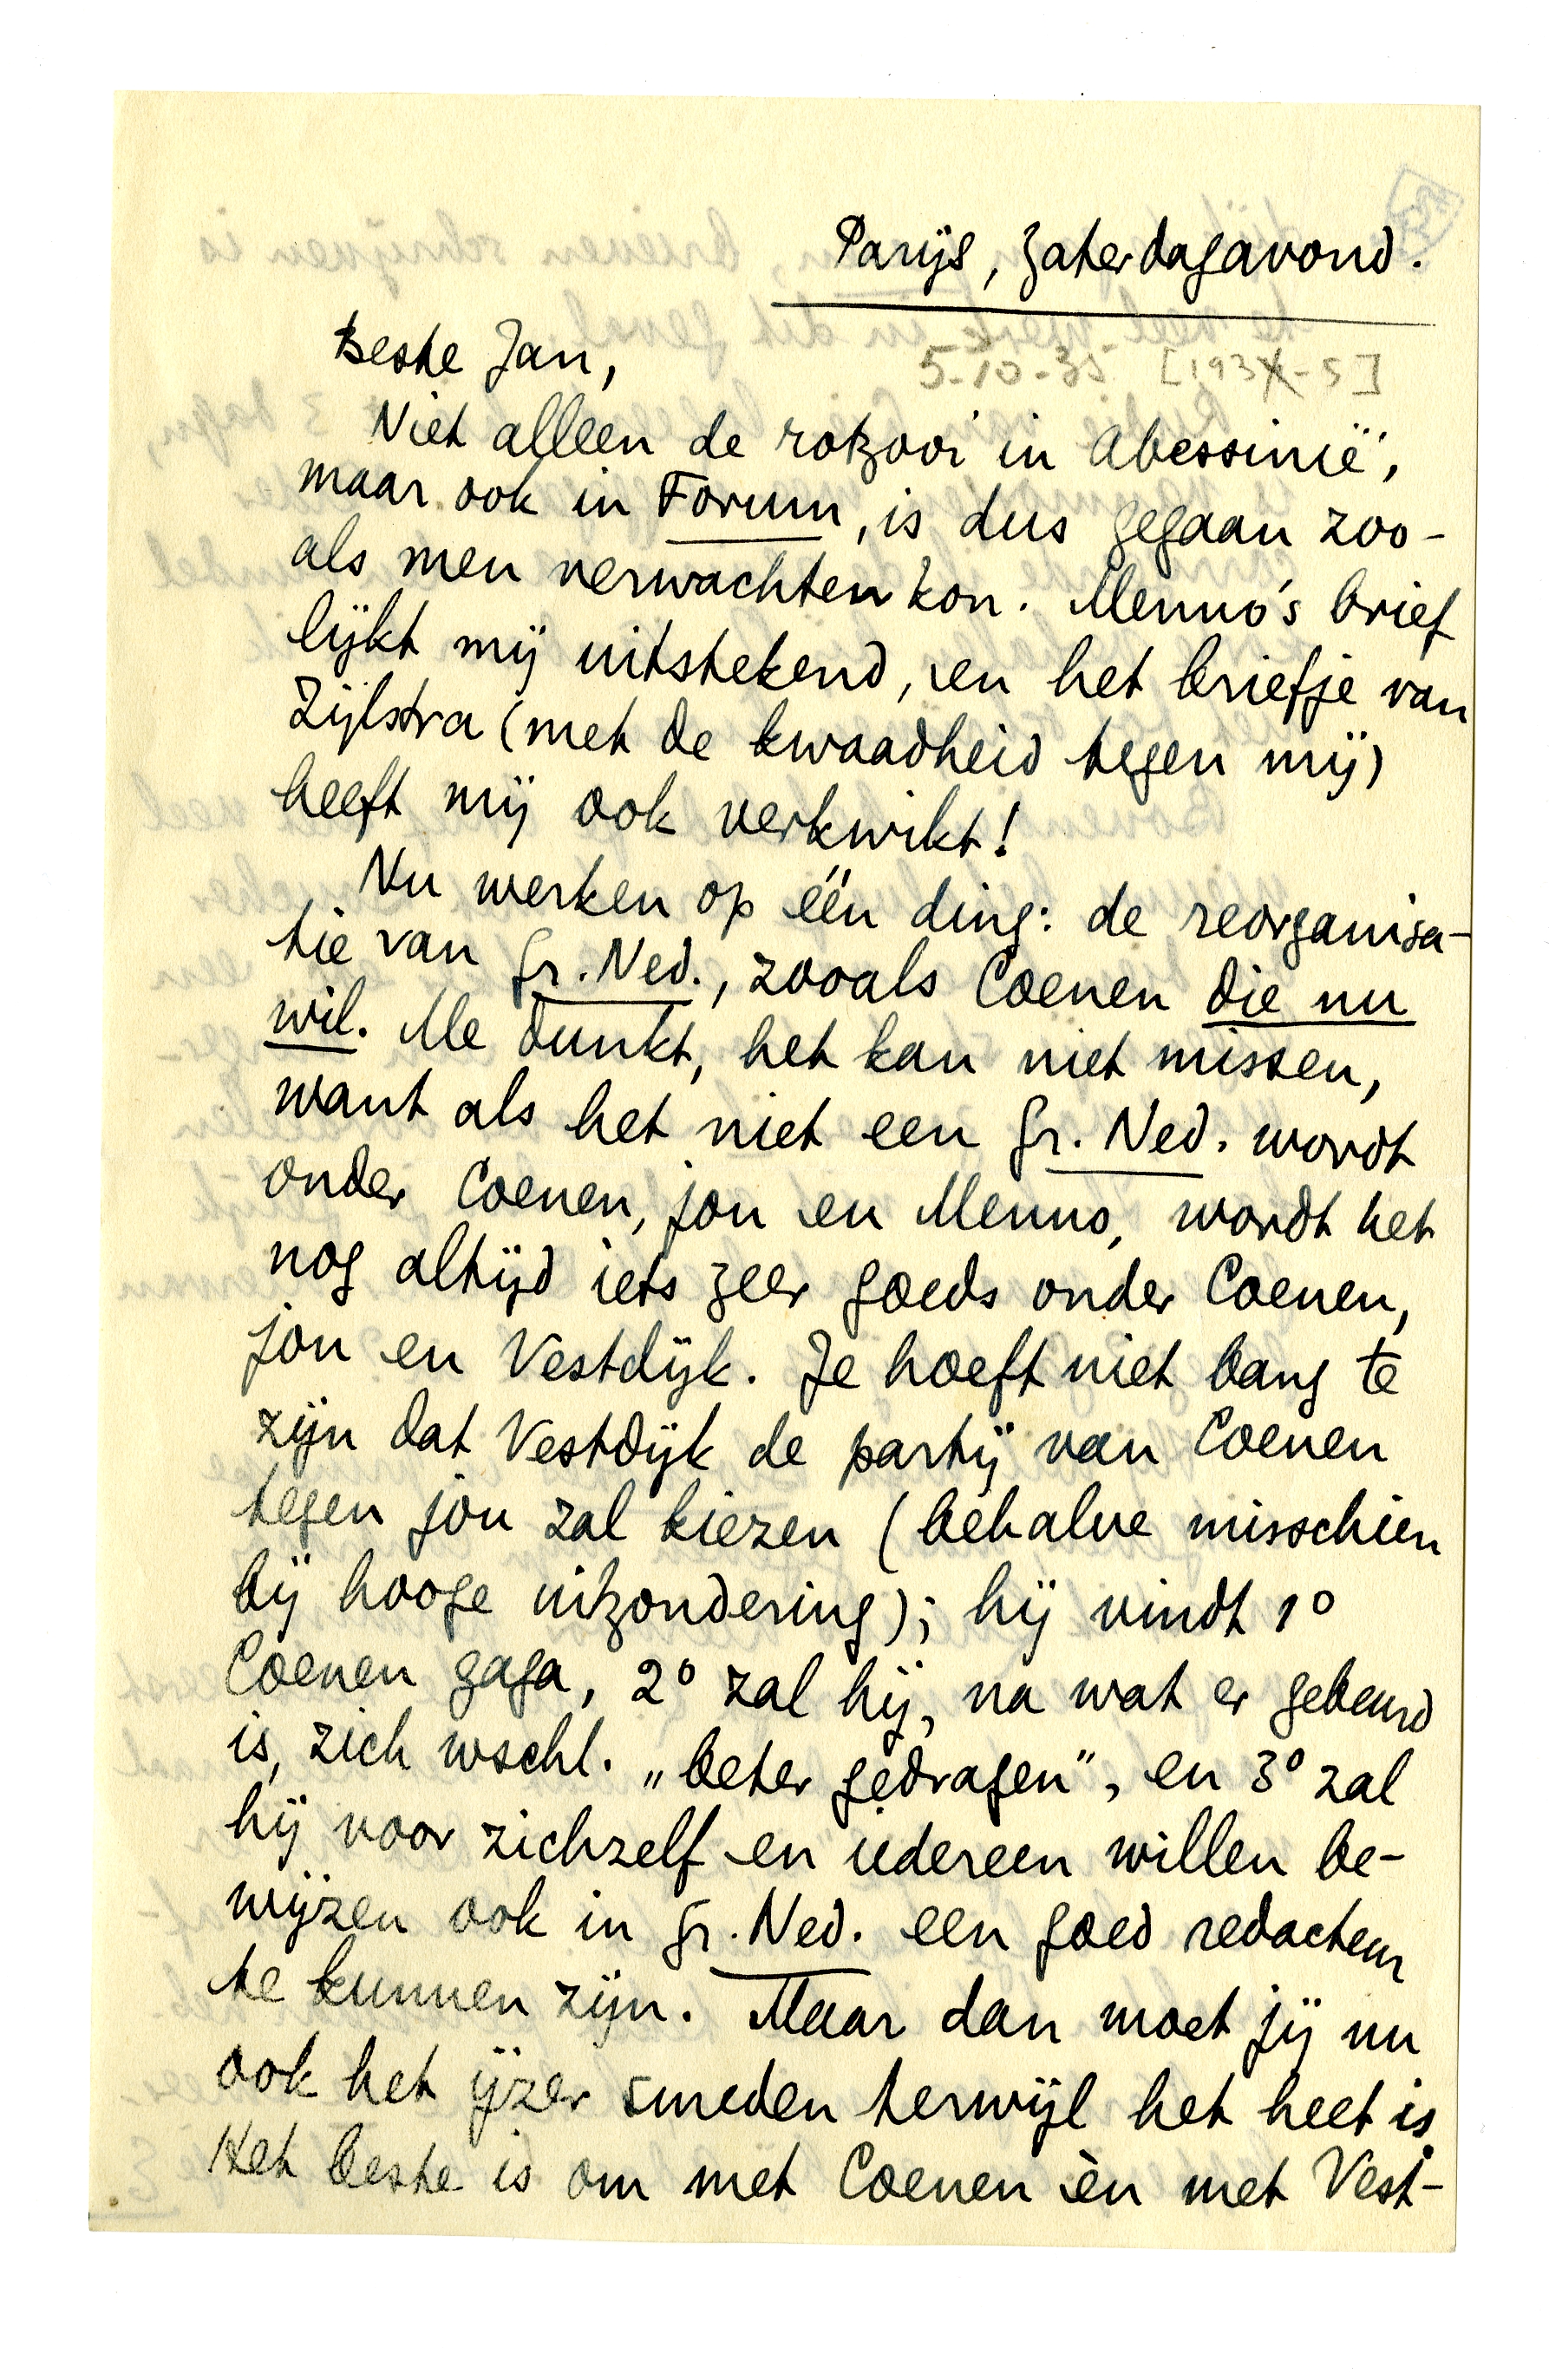 Parijs, Zaterdagavond.
Beste Jan,
5-10-35 [1934-5]
Niet alleen de rotzooi in Abessinië,
maar ook in Forum, is dus gegaan zoo-
als men verwachten kon. Menno's brief
lijkt mij uitstekend, en het briefje van
Zijlstra (met de kwaadheid tegen mij)
heeft mij ook verkwikt!
Nu werken op één ding: de reorganisa-
tie van Gr. Ned., zooals Coenen die nu
wil. Me dunkt, het kan niet missen,
want als het niet een Gr. Ned. wordt
onder Coenen, jou en Menno, wordt het
nog altijd iets zeer goeds onder Coenen,
jou en Vestdijk. Je hoeft niet bang te
zijn dat Vestdijk de partij van Coenen
tegen jou zal kiezen (behalve misschien
bij hooge uitzondering); hij vindt 1º
Coenen gaga, 2º zal hij, na wat er gebeurd
is, zich wschl. „beter gedragen", en 3º zal
hij voor zichzelf en iedereen willen be-
wijzen ook in Gr. Ned. een goed redacteur
te kunnen zijn. Maar dan moet jij nu
ook het ijzer smeden terwijl het heet is.
Het beste is om met Coenen èn met Vest-